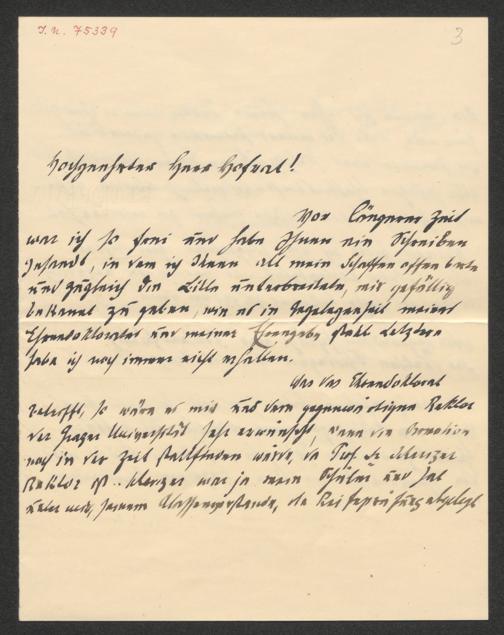 I.N. 75339
3
Hochgeehrter Herr Hofrat!
Vor längerer Zeit
war ich so frei und habe Ihnen ein Schreiben
gesandt, in dem ich Ihnen all mein Schaffen offen
und zugleich die Bitte unterbreitete, mir gefällig
bekannt zu geben, wie es in Angelegenheit meines
Ehrendoktorates und meiner Ehrengabe steht. Letztere
habe ich noch immer nicht erhalten.
Was das Ehrendoktorat
betrifft, so wäre es mir und dem gegenwärtigen Rektor
der Grazer Universität sehr erwünscht, wenn die Promotion
noch in der Zeit stattfinden würde, da Prof. Dr.
Rektor ist. war ja mein Schüler und hat
unter mir, seinem Klassenvorstande, die Reifeprüfung abgelegt